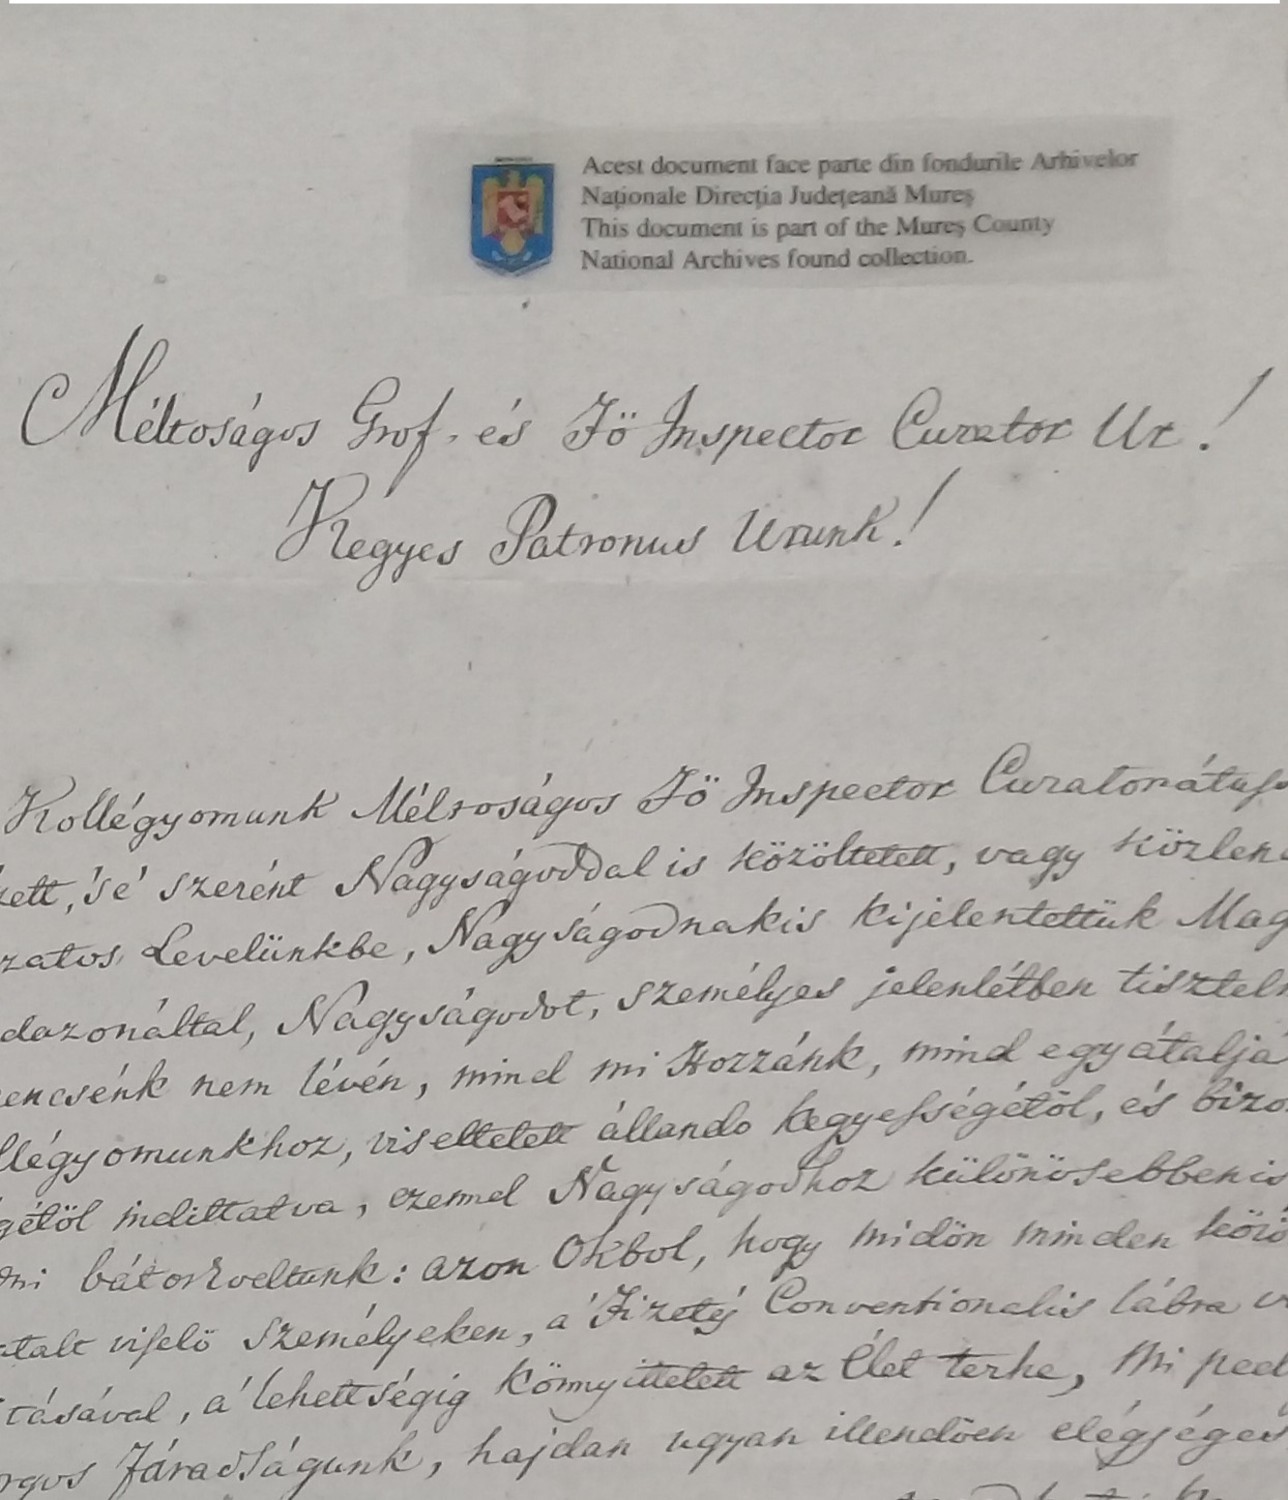 Acest document face parte din fondurile Arhivelor
Naționale Direcția Județeană Mureș
This document is part of the Mureș County
National Archives found collection.
Méltoságos Grof, és Fö Inspector Curator Ur!
Kegyes Patronus Urunk!
Kollégyomunk Méltoságos Fö Inspector Curatorátuss
zett, 's é szerént Nagyságoddal is közöltetett, vagy közlen
zatos Levelünkbe, Nagyságodnakis kijelentettük Mag
dazonáltal, Nagyságodot, személyes jelenlétben tiszteln
encsénk nem lévén, mind mi Hozzánk, mind egyátaljá
llégyomunkhoz, viseltetett állando kegyességétöl, és bizo
gétöl indíttatva, ezennel Nagyságodhoz különösebbenis
ni bátorkodtunk: azon Okbol, hogy midön minden
atalt viselö személyeken, a' Fizetés Conventionalis lábra
tásával, a' lehettségig könnyíttetett az Élet terhe, Mi ped
rgos Fáradságunk, hajdan ugyan illendöen elégséges